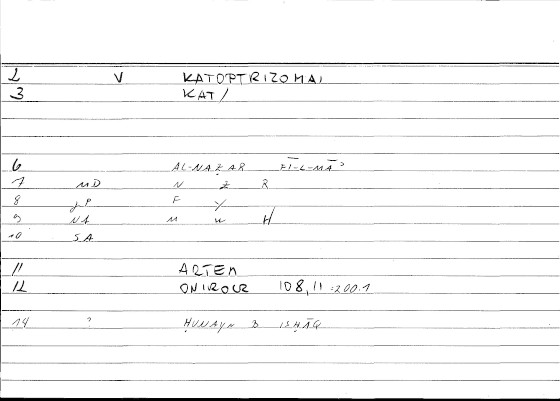 2 V KATOPTRIZOMAI
3 KAT/
6 AL-NAẒAR FĪ-L-MĀʾ
7 MD N Ẓ R
8 JP F Y
9 NA M W H
10 SA
11 ARTEM
12 ONIROCR 108,11 :200.1
14 ? ḤUNAYN B ISḤĀQ